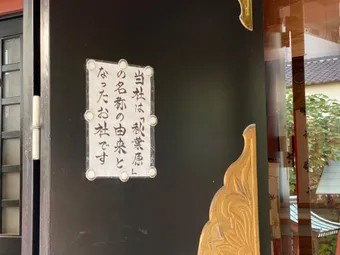 当社は「秋葉原」
の名称の由来と
なったお社です